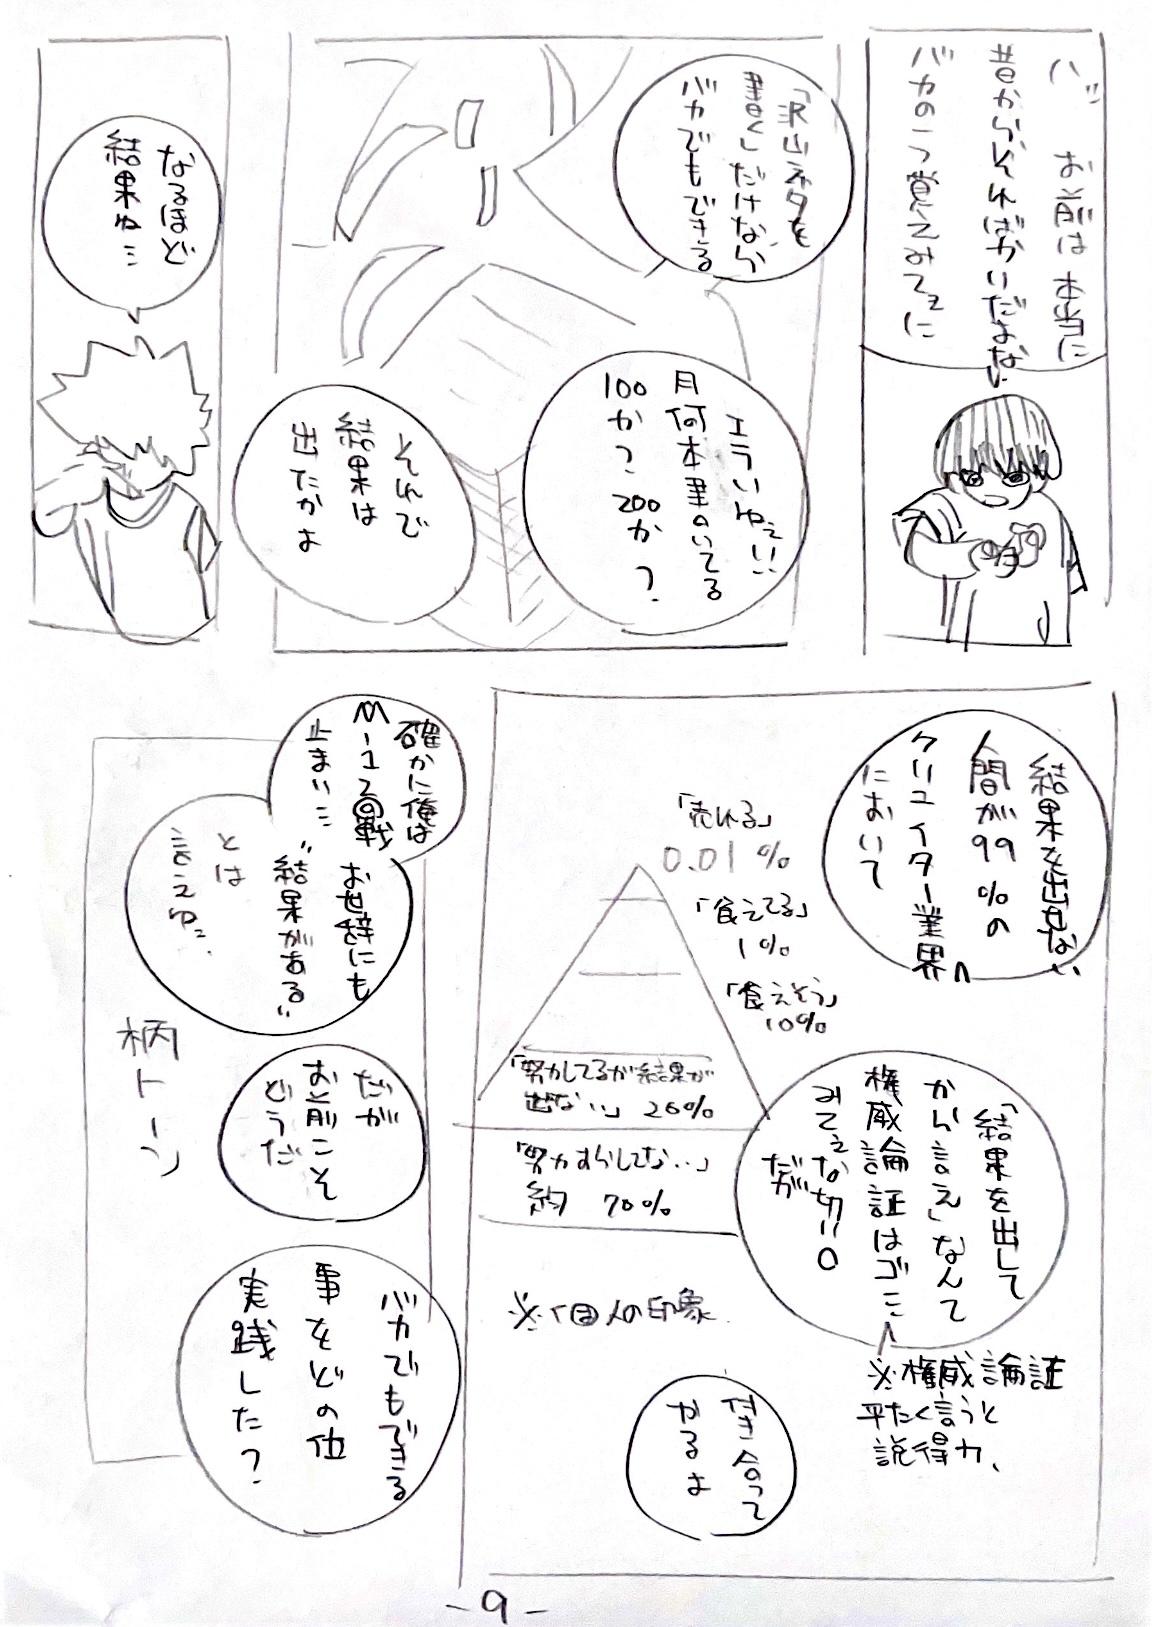 ハッ お前は本当に
昔からそればかりだよな
バカの一つ覚えみてェに
「沢山ネタを
書く」だけなら
バカでもできる
エラいねぇ!!
月何本書いてる
100か? 200か?
それで
結果は
出たかよ
なるほど
結果ね…
結果を出せない
人間が99%の
クリエイター業界
において
「売れる」
0.01%
「食えてる」
1%
「食えそう」
10%
「努力してるが結果が
出ない」 20%
「努力すらしてない」
約 70%
※個人の印象
「結果を出して
から言え」なんて
権威論証はゴミ
みてェな切り口
だが
※権威論証
平たく言うと
説得力、
付き合って
やるよ
確かに俺は
M-1 2回戦
止まり…
お世辞にも
"結果がある"
とは
言えねェ
だが
お前こそ
どうだ
バカでもできる
事をどの位
実践した?
柄トーン
- 9 -